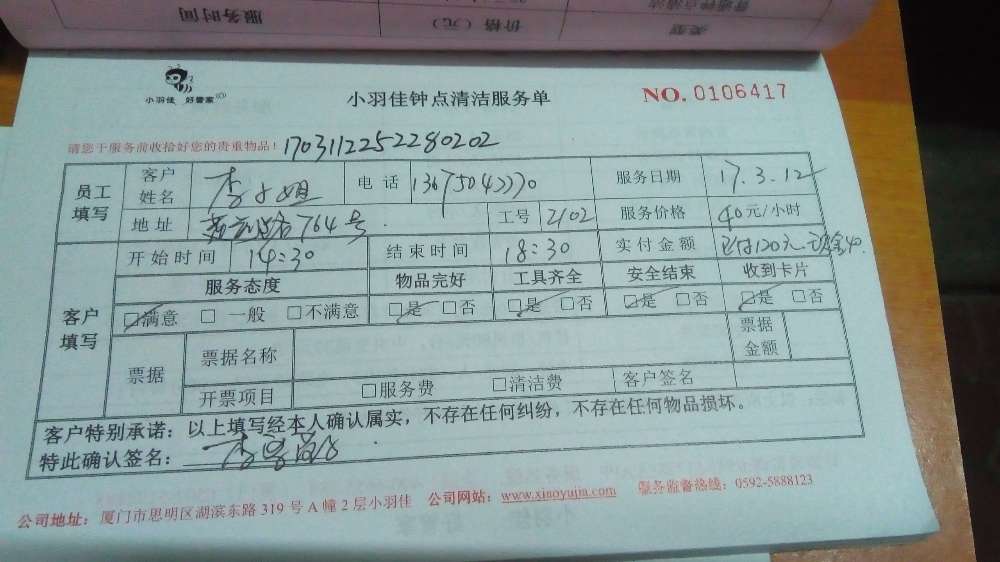 服务时间
价格（元）
类型
普通钟点清洁
小羽佳 好管家
小羽佳钟点清洁服务单
NO. 0106417
请您于服务前收拾好您的贵重物品！ 1703112252280202
员工填写 客户姓名 李小姐 电话 服务日期 17.3.12
地址 764号 工号 2102 服务价格 40元/小时
客户填写 开始时间 14:30 结束时间 18:30 实付金额 已付120元 现金40
服务态度 物品完好 工具齐全 安全结束 收到卡片
☑满意 □一般 □不满意 ☑是 □否 ☑是 □否 ☑是 □否 ☑是 □否
票据 票据名称 票据金额
开票项目 □服务费 □清洁费 客户签名
客户特别承诺：以上填写经本人确认属实，不存在任何纠纷，不存在任何物品损坏。
特此确认签名：
公司地址：厦门市思明区湖滨东路 319 号 A 幢 2 层小羽佳 公司网站：www.xiaoyujia.com 服务监督热线：0592-5888123